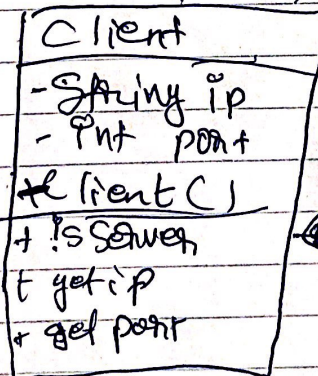 Client
- String ip
- int port
+Client()
+ isServer
+ getip
+ get port